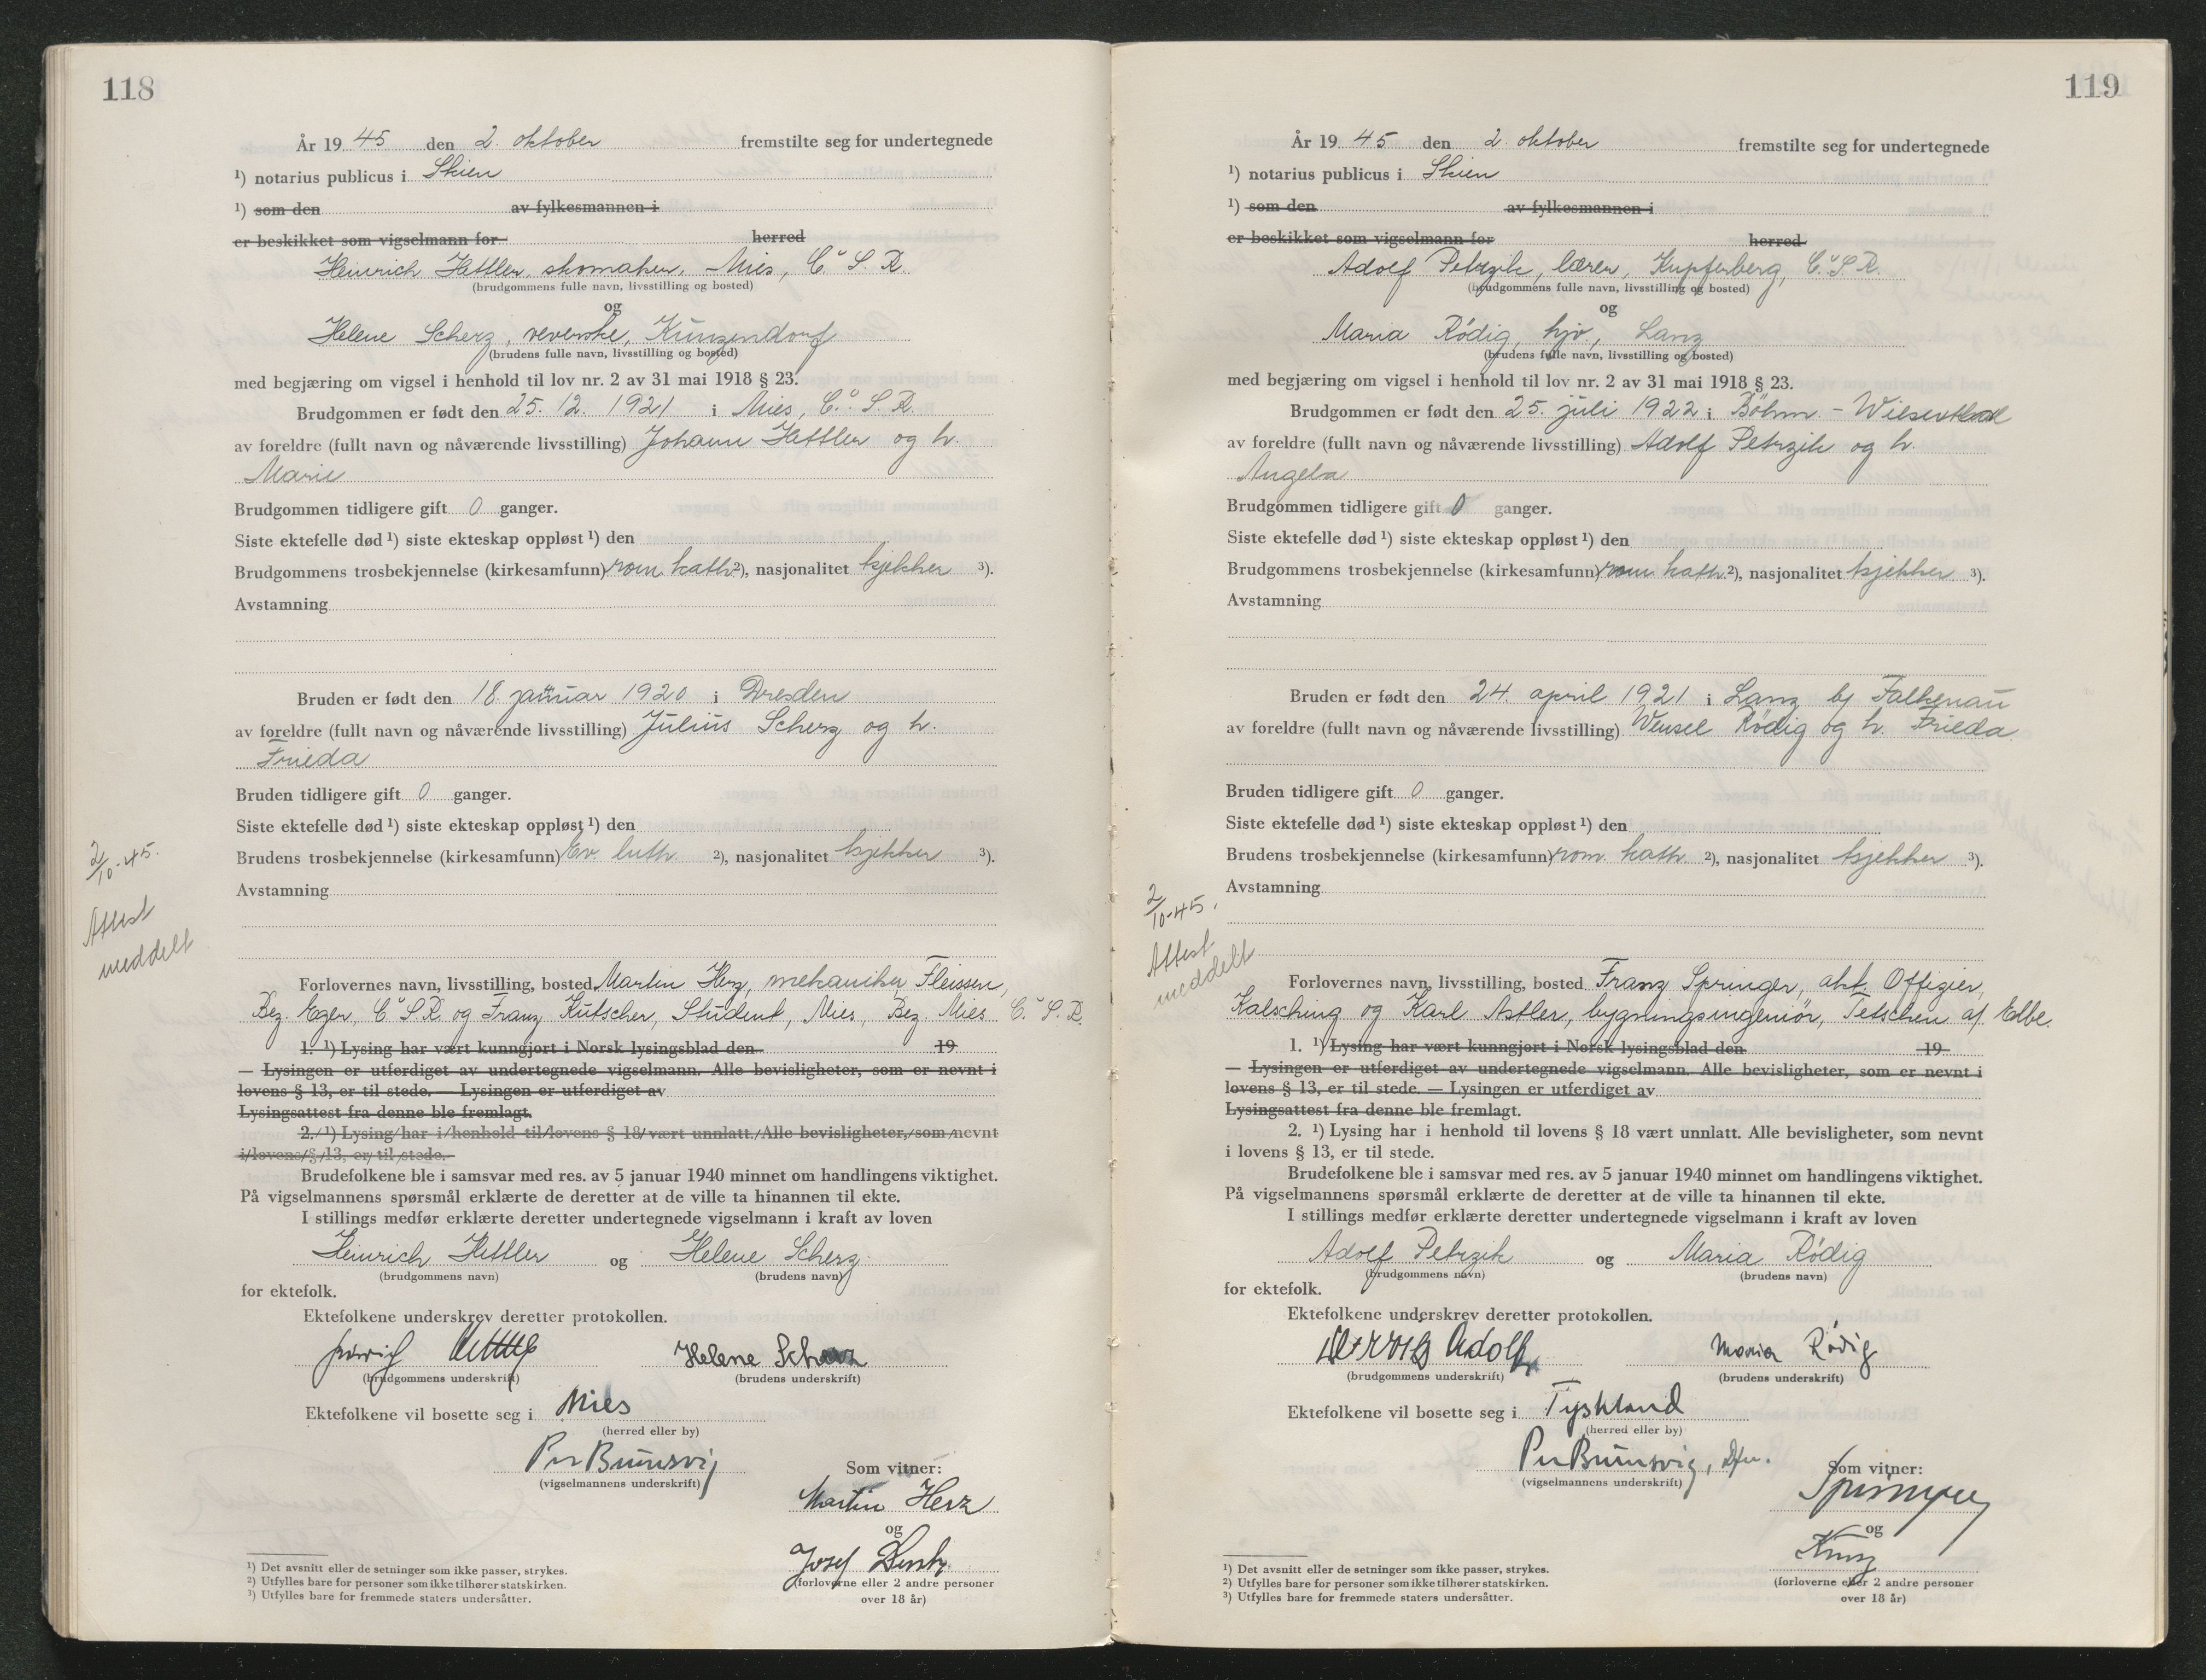 118
År 19 45 den 2. oktober fremstilte seg for undertegnede
¹) notarius publicus i Skien
¹) som den av fylkesmannen i
er beskikket som vigselmann for herred
Heinrich Hettler, skomaker, Mies, Č. S. R.
(brudgommens fulle navn, livsstilling og bosted)
og
Helene Scherz, veverske, Kunzendorf
(brudens fulle navn, livsstilling og bosted)
med begjæring om vigsel i henhold til lov nr. 2 av 31 mai 1918 § 23.
Brudgommen er født den 25. 12. 1921 i Mies, Č. S. R.
av foreldre (fullt navn og nåværende livsstilling) Johann Hettler og h.
Marie
Brudgommen tidligere gift 0 ganger.
Siste ektefelle død ¹) siste ekteskap oppløst ¹) den
Brudgommens trosbekjennelse (kirkesamfunn) rom. kath. ²), nasjonalitet tsjekker ³).
Avstamning
Bruden er født den 18. januar 1920 i Dresden
av foreldre (fullt navn og nåværende livsstilling) Julius Scherz og h.
Frieda
Bruden tidligere gift 0 ganger.
Siste ektefelle død ¹) siste ekteskap oppløst ¹) den
Brudens trosbekjennelse (kirkesamfunn) Ev. luth. ²), nasjonalitet tsjekker ³).
Avstamning
2/10-45.
Attest
meddelt
Forlovernes navn, livsstilling, bosted Martin Herz, mekaniker, Fleissen,
Bez. Eger, Č. S. R. og Franz Kutscher, Student, Mies, Bez. Mies Č. S. R.
1. ¹) Lysing har vært kunngjort i Norsk lysingsblad den 19
— Lysingen er utferdiget av undertegnede vigselmann. Alle bevisligheter, som er nevnt i
lovens § 13, er til stede. — Lysingen er utferdiget av
Lysingsattest fra denne ble fremlagt.
2. ¹) Lysing har i henhold til lovens § 18 vært unnlatt. Alle bevisligheter, som nevnt
i lovens § 13, er til stede.
Brudefolkene ble i samsvar med res. av 5 januar 1940 minnet om handlingens viktighet.
På vigselmannens spørsmål erklærte de deretter at de ville ta hinannen til ekte.
I stillings medfør erklærte deretter undertegnede vigselmann i kraft av loven
Heinrich Hettler og Helene Scherz
(brudgommens navn) (brudens navn)
for ektefolk.
Ektefolkene underskrev deretter protokollen.
Helene Scherz
(brudgommens underskrift) (brudens underskrift)
Ektefolkene vil bosette seg i Mies
(herred eller by)
Per Bumsvig
(vigselmannens underskrift)
Som vitner:
Martin Herz
og
Josef
(forloverne eller 2 andre personer
over 18 år)
¹) Det avsnitt eller de setninger som ikke passer, strykes.
²) Utfylles bare for personer som ikke tilhører statskirken.
³) Utfylles bare for fremmede staters undersåtter.
119
År 19 45 den 2. oktober fremstilte seg for undertegnede
¹) notarius publicus i Skien
¹) som den av fylkesmannen i
er beskikket som vigselmann for herred
Adolf Petrzik, lærer, Kupferberg, Č. S. R.
(brudgommens fulle navn, livsstilling og bosted)
og
Maria Rödig, hjv., Lanz
(brudens fulle navn, livsstilling og bosted)
med begjæring om vigsel i henhold til lov nr. 2 av 31 mai 1918 § 23.
Brudgommen er født den 25. juli 1922 i Böhm. -
av foreldre (fullt navn og nåværende livsstilling) Adolf Petrzik og h.
Angela
Brudgommen tidligere gift 0 ganger.
Siste ektefelle død ¹) siste ekteskap oppløst ¹) den
Brudgommens trosbekjennelse (kirkesamfunn) rom kath. ²), nasjonalitet tsjekker ³).
Avstamning
Bruden er født den 24. april 1921 i Lanz bj Falkenau
av foreldre (fullt navn og nåværende livsstilling) Wensel Rödig og h. Frieda
Bruden tidligere gift 0 ganger.
Siste ektefelle død ¹) siste ekteskap oppløst ¹) den
Brudens trosbekjennelse (kirkesamfunn) rom. kath. ²), nasjonalitet tsjekker ³).
Avstamning
2/10-45.
Attest
meddelt
Forlovernes navn, livsstilling, bosted Franz Springer, akt. Offizier,
Kalsching og Karl Astler, bygningsingeniör, Tetschen a/ Elbe.
1. ¹) Lysing har vært kunngjort i Norsk lysingsblad den 19
— Lysingen er utferdiget av undertegnede vigselmann. Alle bevisligheter, som er nevnt i
lovens § 13, er til stede. — Lysingen er utferdiget av
Lysingsattest fra denne ble fremlagt.
2. ¹) Lysing har i henhold til lovens § 18 vært unnlatt. Alle bevisligheter, som nevnt
i lovens § 13, er til stede.
Brudefolkene ble i samsvar med res. av 5 januar 1940 minnet om handlingens viktighet.
På vigselmannens spørsmål erklærte de deretter at de ville ta hinannen til ekte.
I stillings medfør erklærte deretter undertegnede vigselmann i kraft av loven
Adolf Petrzik og Maria Rödig
(brudgommens navn) (brudens navn)
for ektefolk.
Ektefolkene underskrev deretter protokollen.
Petrzik Adolf Maria Rödig
(brudgommens underskrift) (brudens underskrift)
Ektefolkene vil bosette seg i Tyskland
(herred eller by)
Per Bumsvig, Dfm.
(vigselmannens underskrift)
Som vitner:
Springer
og
(forloverne eller 2 andre personer
over 18 år)
¹) Det avsnitt eller de setninger som ikke passer, strykes.
²) Utfylles bare for personer som ikke tilhører statskirken.
³) Utfylles bare for fremmede staters undersåtter.